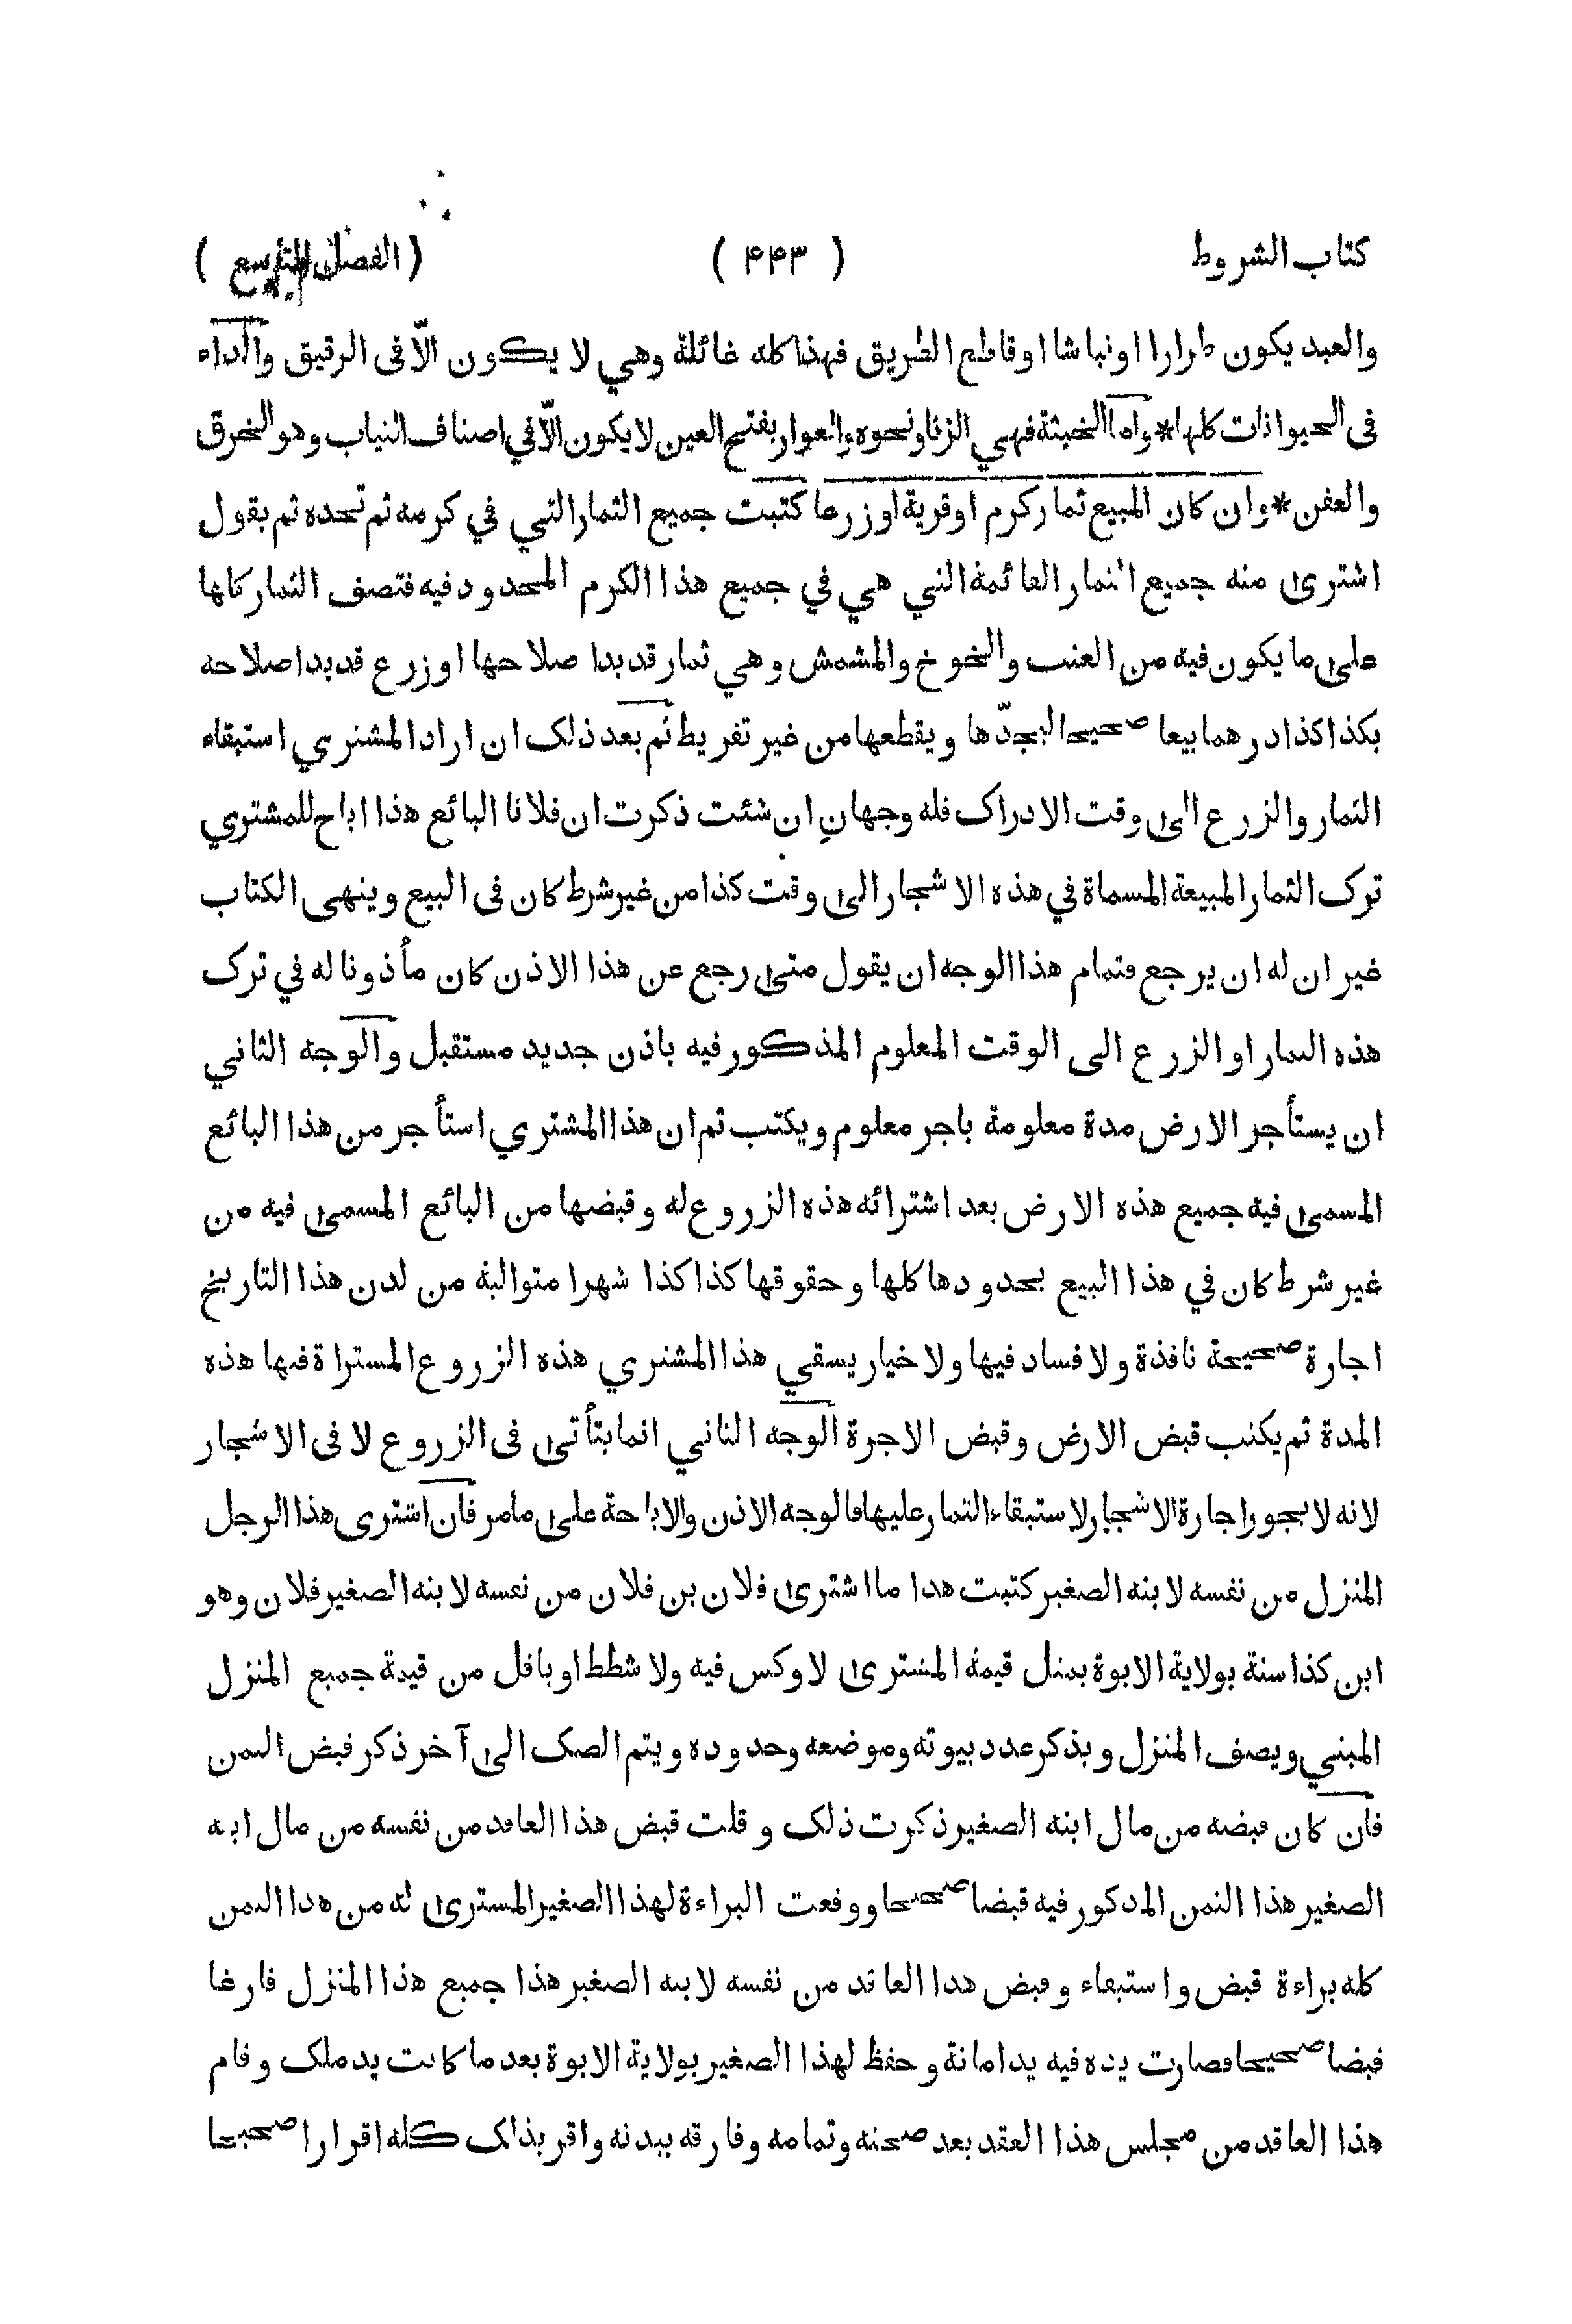 كتاب الشروط ( ۴۴۳ ) ( الفصل التاسع )
والعبد يكون طرارا او نباشا او قاطع الطريق فهذا كله غائلة وهي لا يكون الّا فى الرقيق والداء
فى الحيوانات كلها * واما الخبثة فهي الزنا ونحوه والعوار بفتح العين لا يكون الّا في اصناف الثياب وهو الخرق
والعفن * وان كان المبيع ثمار كرم او قرية او زرعا كتبت جميع الثمار التي في كرمه ثم تحده ثم يقول
اشترى منه جميع الثمار القائمة التي هي في جميع هذا الكرم المحدود فيه فتصف الثمار كلها
على ما يكون فيه من العنب والخوخ والمشمش وهي ثمار قد بدا صلاحها او زرع قد بدا صلاحه
بكذا كذا درهما بيعا صحيحا ليجدّها ويقطعها من غير تفريط ثم بعد ذلك ان اراد المشتري استبقاء
الثمار والزرع الى وقت الادراك فله وجهان ان شئت ذكرت ان فلانا البائع هذا اباح للمشتري
ترك الثمار المبيعة المسماة في هذه الاشجار الى وقت كذا من غير شرط كان فى البيع وينهى الكتاب
غير ان له ان يرجع فتمام هذا الوجه ان يقول متى رجع عن هذا الاذن كان مأذونا له في ترك
هذه الثمار او الزرع الى الوقت المعلوم المذكور فيه باذن جديد مستقبل والوجه الثاني
ان يستأجر الارض مدة معلومة باجر معلوم ويكتب ثم ان هذا المشتري استأجر من هذا البائع
المسمى فيه جميع هذه الارض بعد اشترائه هذه الزروع له وقبضها من البائع المسمى فيه من
غير شرط كان في هذا البيع بحدودها كلها وحقوقها كذا كذا شهرا متوالية من لدن هذا التاريخ
اجارة صحيحة نافذة ولا فساد فيها ولا خيار يسقي هذا المشتري هذه الزروع المشتراة فيها هذه
المدة ثم يكتب قبض الارض وقبض الاجرة الوجه الثاني انما يتأتى فى الزروع لا فى الاشجار
لانه لا يجوز اجارة الاشجار لاستبقاء الثمار عليها فالوجه الاذن والاباحة على ما مر فان اشترى هذا الرجل
المنزل من نفسه لابنه الصغير كتبت هذا ما اشترى فلان بن فلان من نفسه لابنه الصغير فلان وهو
ابن كذا سنة بولاية الابوة بمثل قيمة المشترى لا وكس فيه ولا شطط او باقل من قيمة جميع المنزل
المبني ويصف المنزل ويذكر عدد بيوته وموضعه وحدوده ويتم الصك الى آخر ذكر قبض الثمن
فان كان قبضه من مال ابنه الصغير ذكرت ذلك وقلت قبض هذا العاقد من نفسه من مال ابنه
الصغير هذا الثمن المذكور فيه قبضا صحيحا ووقعت البراءة لهذا الصغير المشترى له من هذا الثمن
كله براءة قبض واستيفاء وقبض هذا العاقد من نفسه لابنه الصغير هذا جميع هذا المنزل فارغا
قبضا صحيحا فصارت يده فيه يد امانة وحفظ لهذا الصغير بولاية الابوة بعد ما كانت يد ملك وقام
هذا العاقد من مجلس هذا العقد بعد صحته وتمامه وفارقه ببدنه واقر بذلك كله اقرارا صحيحا